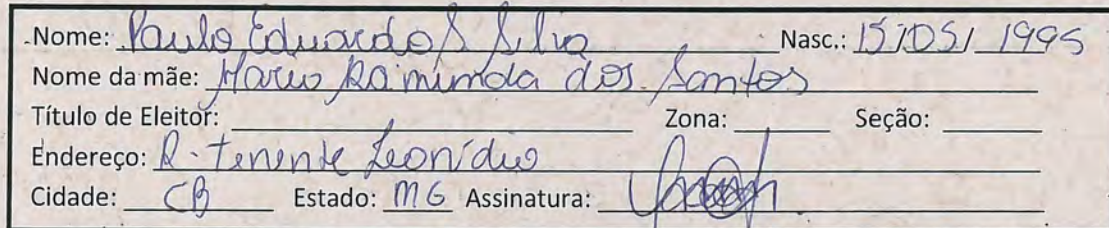 Nome: Paulo Eduardo S Silva Nasc.: 15/05/1995
Nome da mãe: Maria Raimunda dos Santos
Título de Eleitor: Zona: Seção:
Endereço: R. Tenente Leonídio
Cidade: CB Estado: MG Assinatura: